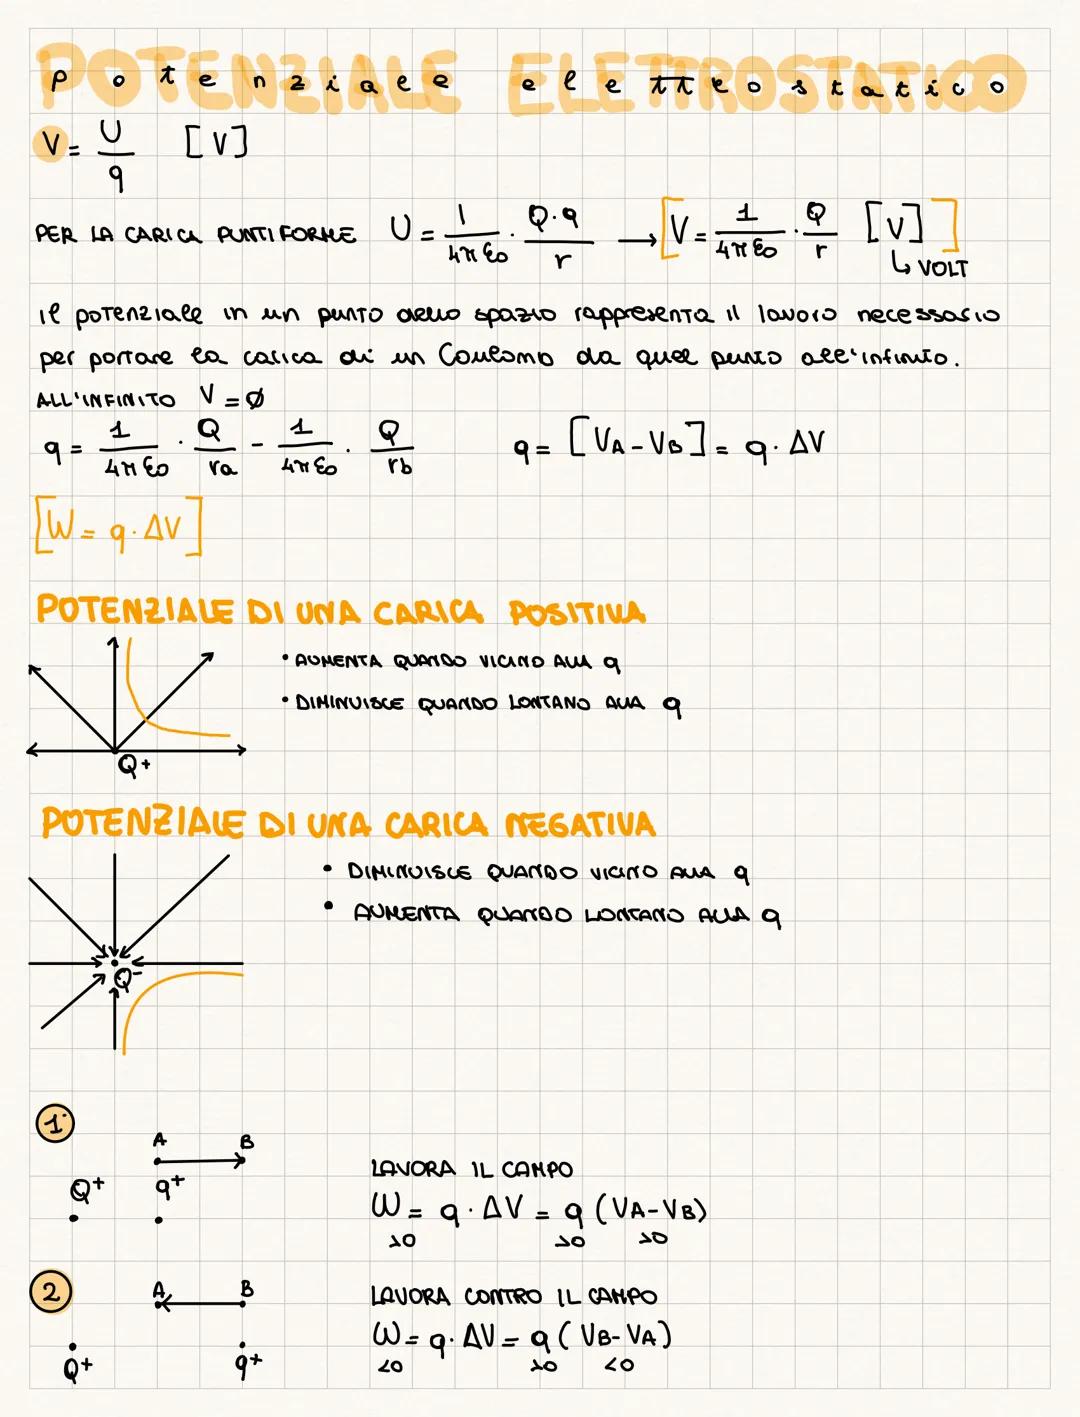 POTENZIALE ELETTROSTATICO
potenziale elettrostatico
V = U/q [V]
PER LA CARICA PUNTIFORME U = 1/4πε0 · Q·q/r → [V = 1/4πε0 · Q/r [V]]
↳ VOLT
il potenziale in un punto dello spazio rappresenta il lavoro necessario
per portare la carica di un Coulomb da quel punto all'infinito.
ALL'INFINITO V = Ø
q = 1/4πε0 · Q/ra - 1/4πε0 · Q/rb q = [VA - VB] = q · ΔV
[W = q · ΔV]
POTENZIALE DI UNA CARICA POSITIVA
• AUMENTA QUANDO VICINO ALLA q
• DIMINUISCE QUANDO LONTANO ALLA q
Q+
POTENZIALE DI UNA CARICA NEGATIVA
• DIMINUISCE QUANDO VICINO ALLA q
• AUMENTA QUANDO LONTANO ALLA q
Q-
1
A B
Q+ q+
LAVORA IL CAMPO
W = q · ΔV = q (VA - VB)
>0 >0 >0
2
A B
Q+ q+
LAVORA CONTRO IL CAMPO
W = q · ΔV = q (VB - VA)
<0 >0 <0